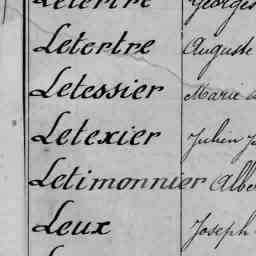 Letertre Georges
Letertre Auguste
Letessier Marie
Letexier Julien
Letimonnier Albe
Leux Joseph